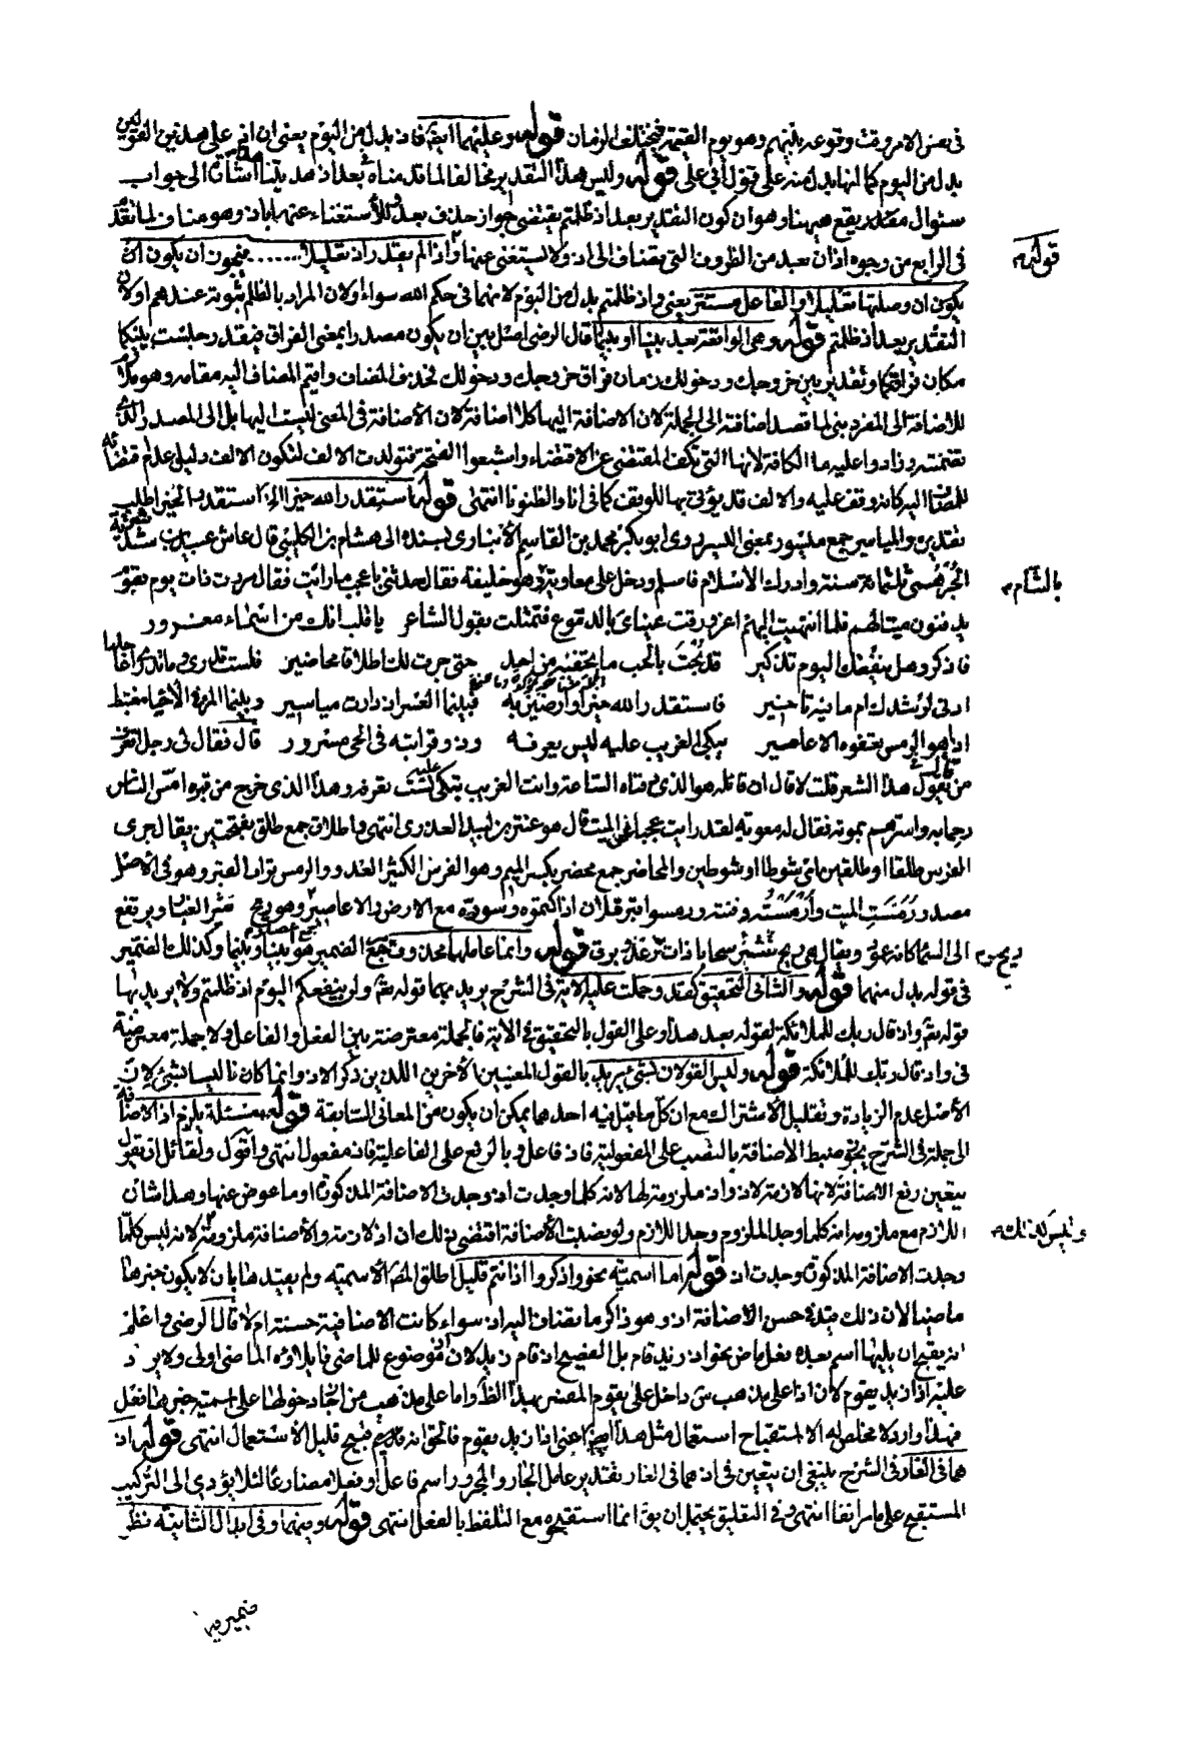 في بعض الامر وقت وقوعه بالنهم وهو يوم القيمة فيختلف الزمان قوله وعليهما ايضا فاذ بدل من اليوم يعنى ان اذ على هذين القولين
بدل من اليوم كما انها بدل منه على قول ابي على قوله وليس هذا التقدير مخالفا لما قدمناه في بعد اذ هديتنا اشارة الى جواب
سئوال مقدر يقع ههنا وهو ان كون التقدير بعد اذ ظلمتم يقتضى جواز حذف بعد للأستغناء عنها باذ وهو مناف لما تقدم
في الرابع من وجوه اذ ان بعد من الظروف التي يضاف الى اذ ولا يستغنى عنها واذا لم يقدر اذ تعليلا ...... فيجوز ان يكون ان
يكون ان وصلتها تعليلا والفاعل مستتر يعنى واذ ظلمتم بدل من اليوم لانهما في حكم الله سواء ولان المراد بالظلم ثبوته عندهم اولان
التقدير بعد اذ ظلمتم قوله وهى الواقعة بعد بينا او بينما قال الرضى اصل بين ان يكون مصدرا بمعنى الفراق فتقدير جلست بينكما
مكان فراقكما وتقدير بين خروجك ودخولك زمان فراق خروجك ودخولك فحذف المضاف واقيم المضاف اليه مقامه وهو
للاضافة الى المفرد بنى لما قصد اضافته الى الجملة لان الاضافة اليها كلا اضافة لان الأضافة في المعنى ليست اليها بل الى المصدر الذى
تضمنته وزادوا عليه ما الكافة لانها التي تكف المقتضى عن الاقتضاء واشبعوا الفتحة فتولدت الالف لتكون الالف دليل عدم اقتضائه
للمضاف اليه كانه وقف عليه والالف قد يؤتى بها للوقف كما في انا والظنونا انتهى قوله استقدر الله خيرا الخ استقدر الخير اطلب
تقديره والمياسير جمع ميسور بمعنى اليسر روى ابو بكر محمد بن القاسم الأنبارى بسنده الى هشام بن الكلبي قال عاش عبيد بن شرية
الجرهمى ثلثمائة سنة وادرك الأسلام فاسلم ودخل على معاوية وهو خليفة فقال حدثنى باعجب ما رأيت فقال مررت ذات يوم بقوم
يدفنون ميتا لهم فلما انتهيت اليهم اغرورقت عيناى بالدموع فتمثلت بقول الشاعر يا قلب انك من اسماء مغرور
فاذكر وهل ينفعك اليوم تذكير قد بحت بالحب ما تخفيه من احد حتى جرت لك اطلاقا محاضير فلست تدرى وما تدرى اعاجلها
ادنى لرشدك ام ما فيه تأخير فاستقدر الله خيرا وارضين به فبينما العسر اذ دارت مياسير وبينما المرء في الأحيا مغتبط
اذا هو الرمس تعفوه الاعاصير يبكى الغريب عليه ليس يعرفه وذو قرابته في الحى مسرور قال فقال لى رجل اتعرف
من يقول هذا الشعر قلت لا قال ان قائله هو الذى دفناه الساعة وانت الغريب تبكى عليه لست تعرفه وهذا الذى خرج من قبره امس الناس
رحما به واسرهم بموته فقال له معوية لقد رايت عجبا فمن الميت قال هو عنتر بن لبيد العذرى انتهى واطلاق جمع طلق بفتحتين يقال جرى
الفرس طلقا او طلقين اى شوطا او شوطين والمحاضير جمع محضير بكسر الميم وهو الفرس الكثير العدو والرمس تراب القبر وهو في الأصل
مصدر رمست الميت وأرمسته دفنته ورمسوا قبر فلان اذا كتموه وسووه مع الارض والاعاصير وهو ريح تثير الغبار ويرتفع
الى السماء كانه عمود ويقال هى ريح تثير سحابا ذات رعد وبرق قوله وانما عاملها محذوف مرجع الضمير هو بينا وبينما وكذلك الضمير
في قوله بدل منهما قوله والثانى التحقيق كقد وحملت عليه الاية في الشرح يريد بهما قوله تعالى ولن ينفعكم اليوم اذ ظلمتم ولا يريد بها
قوله تعالى واذ قال ربك للملائكة لقوله بعد هذا وعلى القول بالتحقيق في الاية فالجملة معترضة بين الفعل والفاعل ولا جملة معترضة
في واذ قال ربك للملائكة قوله وليس القولان بشئ يريد بالقول المعنيين الأخيرين اللذين ذكر الاذ وانما كانا ليسا بشئ لان
الأصل عدم الزيادة وتقليل الأشتراك مع ان كل ما قيل فيه احدهما يمكن ان يكون من المعانى السابقة قوله مسئلة يلزم اذ الاضافة
الى جملة في الشرح يجوز ضبط الاضافة بالنصب على المفعولية فاذ فاعل وبالرفع على الفاعلية فاذ مفعول انتهى واقول ولقائل ان يقول
يتعين رفع الاضافة لانها لازمة لاذ واذ ملزومة لها لانه كلما وجدت اذ وجدت الاضافة المذكورة او ما عوض عنها وهذا شان
اللازم مع ملزومه انه كلما وجد الملزوم وجد اللازم ولو نصبت الأضافة اقتضى ذلك ان اذ لازمة والأضافة ملزومة لانه ليس كلما
وجدت الاضافة المذكورة وجدت اذ قوله اما اسمية نحو واذكروا اذ انتم قليل اطلق المص الأسمية ولم يقيدها بان لا يكون خبرها
ماضيا لان ذلك قيد في حسن الأضافة اذ وهو ذاكر ما يضاف اليه اذ سواء كانت الاضافة حسنة ام لا قال الرضى واعلم
انه يقبح ان يليها اسم بعده فعل ماض نحو اذ زيد قام بل الفصيح اذ قام زيد لان اذ موضوع للماضى فايلاؤه الماضى اولى ولا يرد
عليه اذا زيد يقوم لان اذا على مذهب س داخل على يقوم المضمر يفسره هذا الظ واما على مذهب من اجاز دخولها على اسمية خبرها فعل
فهذا وارد لا مخلص له الا استقباح استعمال مثل هذا ايضا اعنى اذا زيد يقوم فالحق انه قبيح قليل الأستعمال انتهى قوله اذ
هما في الغار في الشرح ينبغى ان يتعين في اذ هما في الغار تقدير عامل الجار والمجرور اسم فاعل او فعلا مضارعا لئلا يؤدى الى التركيب
المستقبح على ما مر انفا انتهى وفي التعليق يحتمل ان يق انما استقبحوه مع التلفظ بالفعل انتهى قوله ومنهما وفي ابدال الثانية نظر
قوله
بالشام
ريح
وليس كذلك